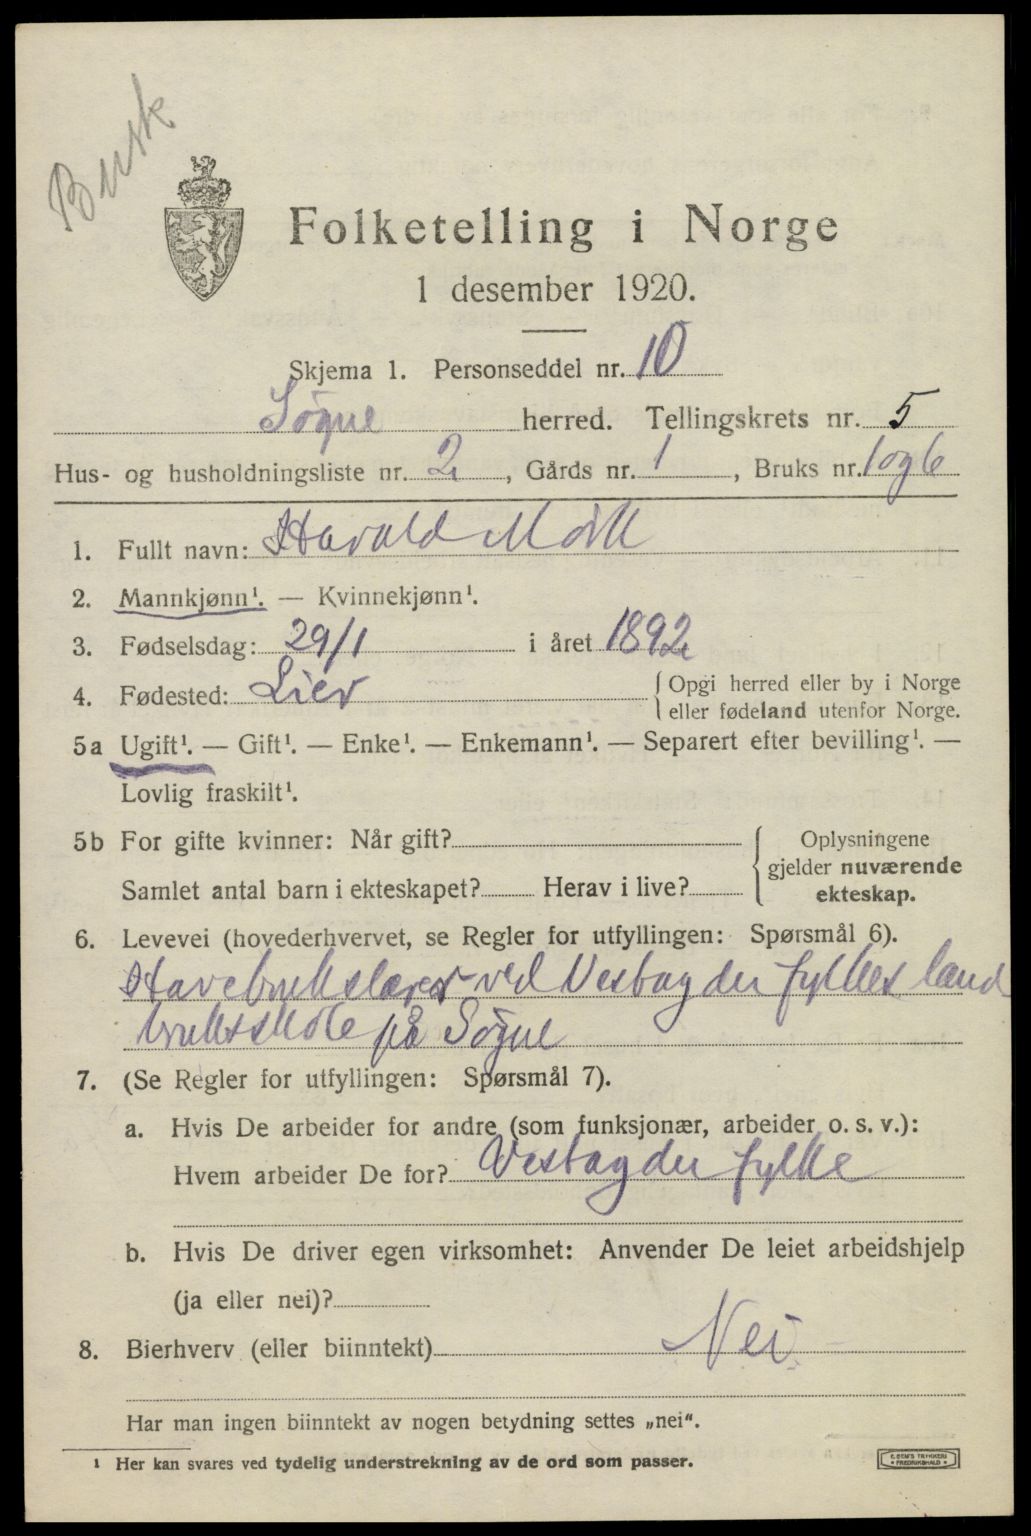 Busk
Folketelling i Norge
1 desember 1920.
Skjema 1. Personseddel nr. 10
Søgne herred. Tellingskrets nr. 5
Hus- og husholdningsliste nr. 2, Gårds nr. 1, Bruks nr. 1 og 6
1. Fullt navn: Harald Mörk
2. Mannkjønn¹. — Kvinnekjønn¹.
3. Fødselsdag: 29/1 i året 1892
4. Fødested: Lier { Opgi herred eller by i Norge
eller fødeland utenfor Norge.
5a Ugift¹. — Gift¹. — Enke¹. — Enkemann¹. — Separert efter bevilling¹. —
Lovlig fraskilt¹.
5b For gifte kvinner: Når gift?
Samlet antal barn i ekteskapet? Herav i live?
{ Oplysningene
gjelder nuværende
ekteskap.
6. Levevei (hovederhvervet, se Regler for utfyllingen: Spørsmål 6).
Havebrukslærer ved Vestagder fylkes land
bruksskole på Søgne
7. (Se Regler for utfyllingen: Spørsmål 7).
a. Hvis De arbeider for andre (som funksjonær, arbeider o. s. v.):
Hvem arbeider De for? Vestagder fylke
b. Hvis De driver egen virksomhet: Anvender De leiet arbeidshjelp
(ja eller nei)?
8. Bierhverv (eller biinntekt) Nei
Har man ingen biinntekt av nogen betydning settes „nei“.
¹ Her kan svares ved tydelig understrekning av de ord som passer.